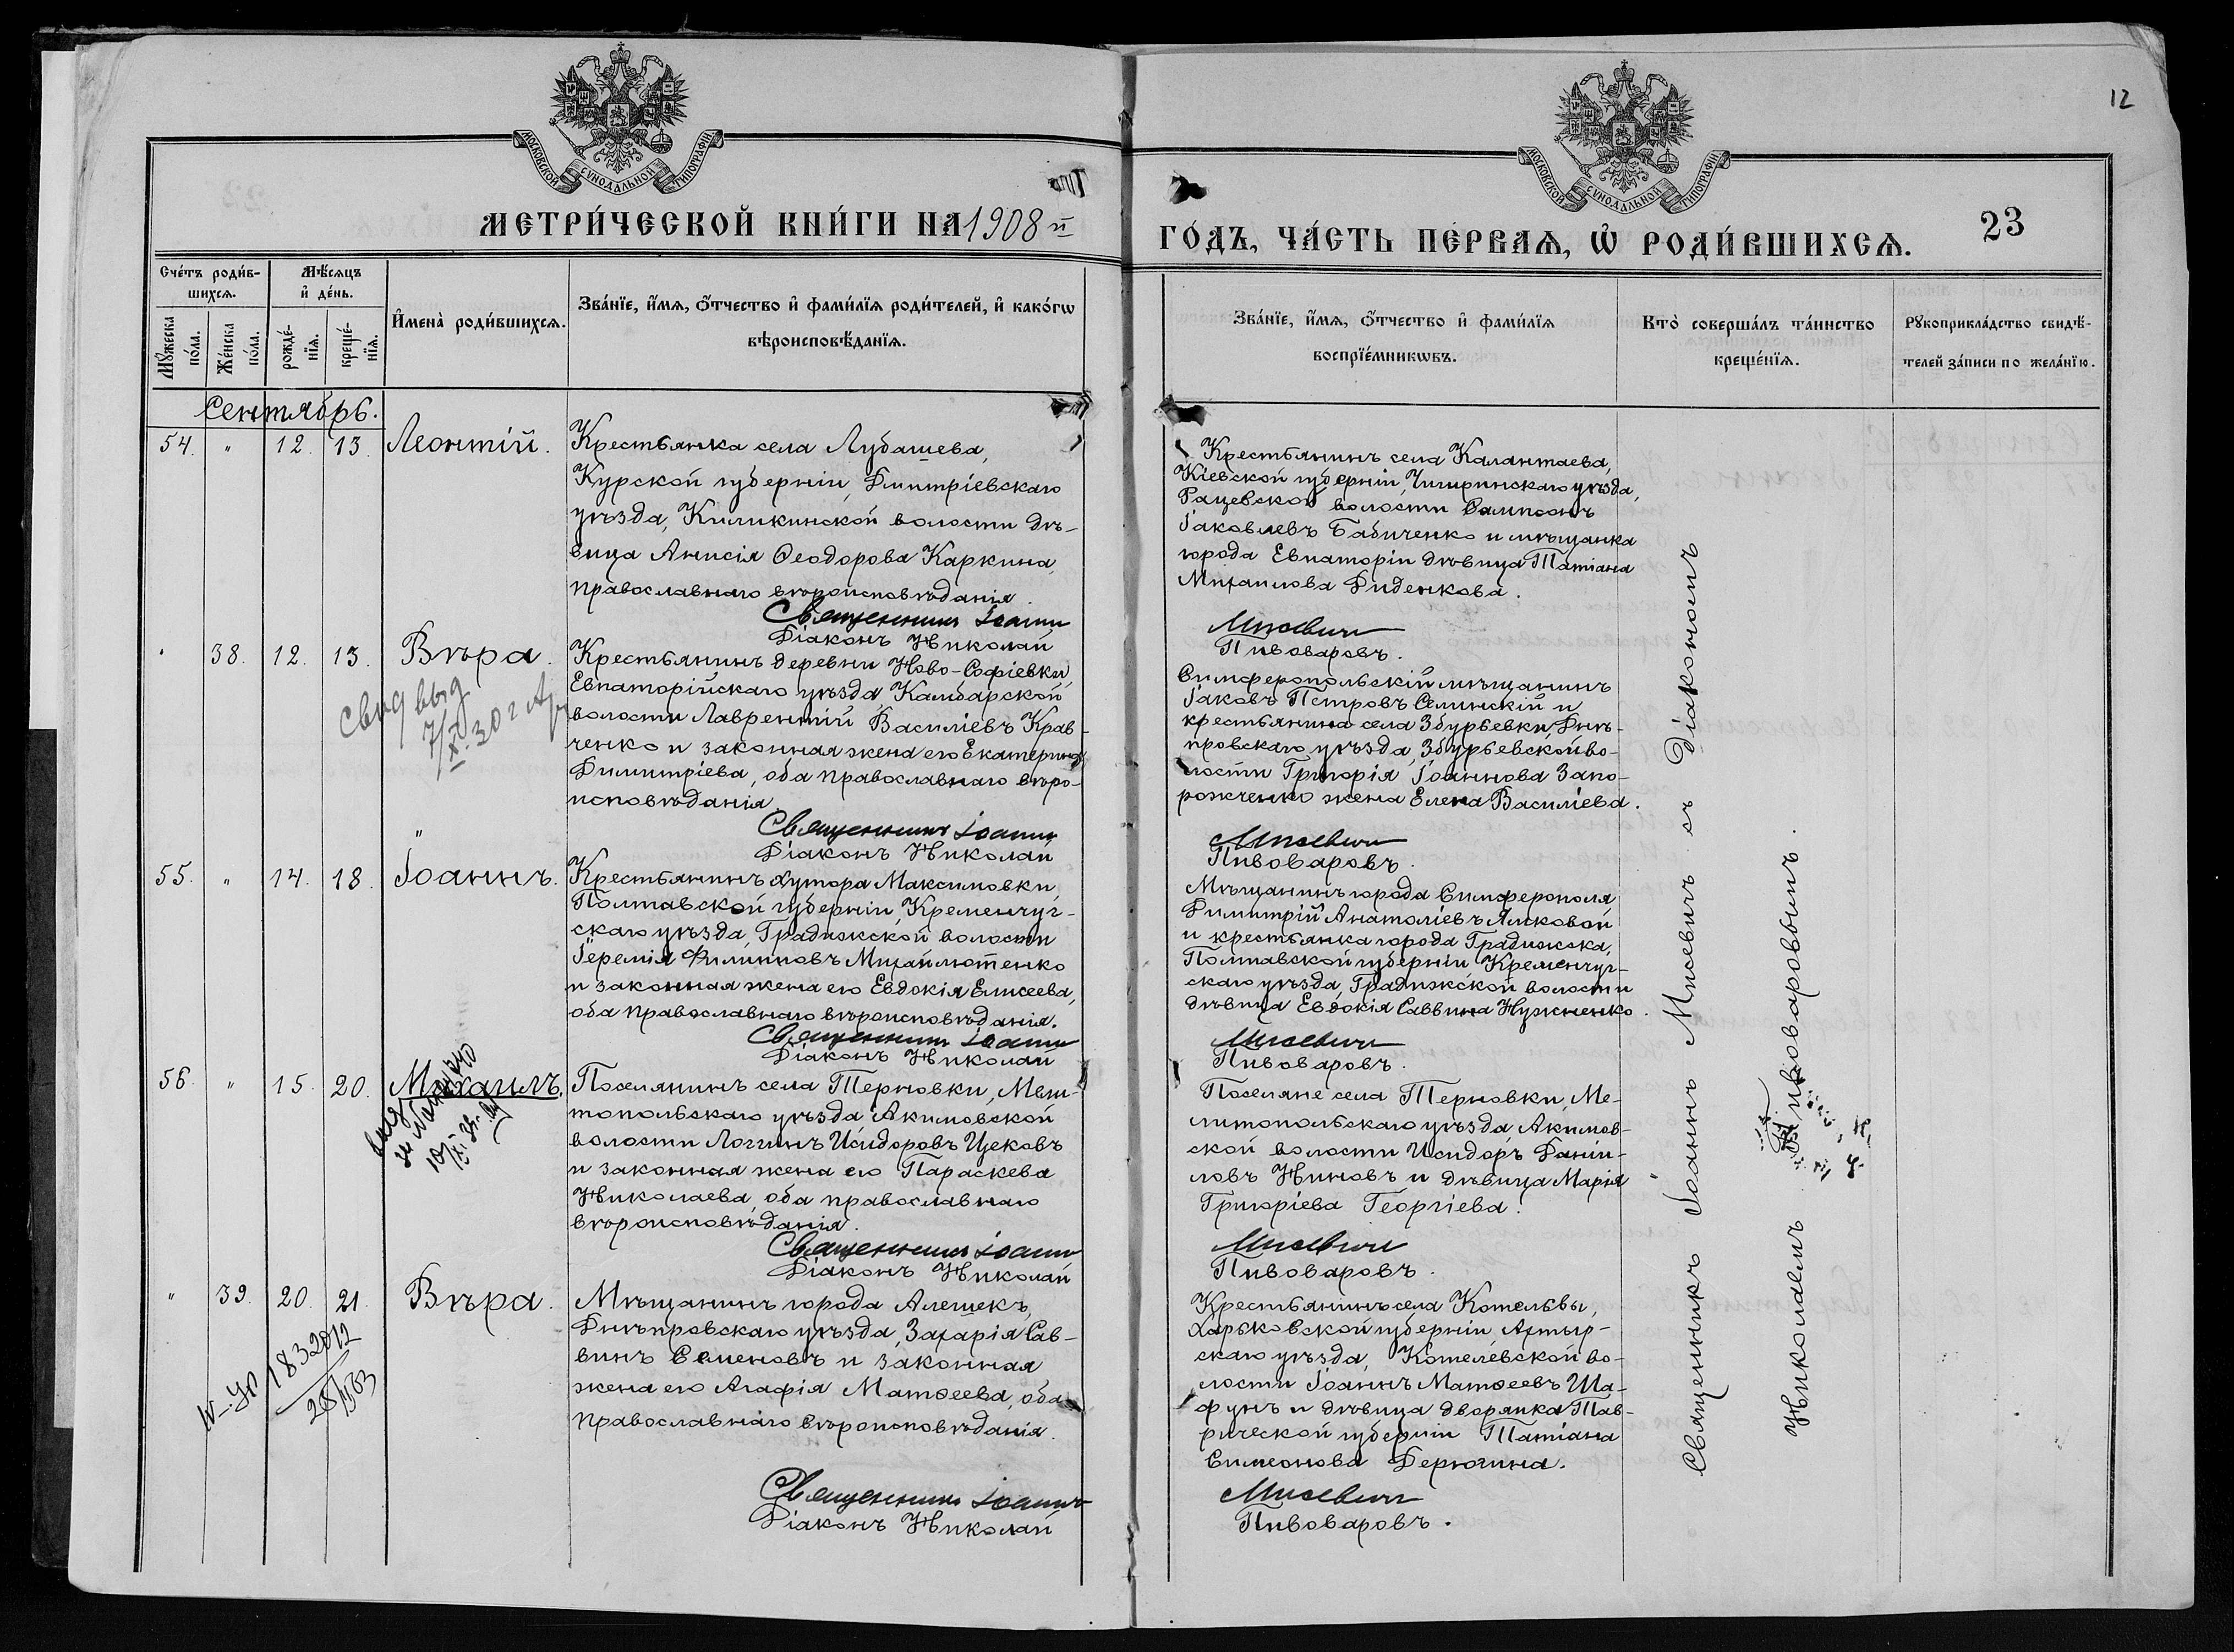 12
МОСКОВСКОЙ СѴНОДАЛЬНОЙ ТИПОГРАФІИ
МОСКОВСКОЙ СѴНОДАЛЬНОЙ ТИПОГРАФІИ
МЕТРИ́ЧЕСКОЙ КНИ́ГИ НА 1908 й
ГО́ДЪ, ЧА́СТЬ ПЕ́РВАѦ, Ѡ҆ РОДИ́ВШИХСѦ.
23
Сче́тъ роди́в-
шихсѧ.
Мѣ́сѧцъ
и҆ де́нь.
Мꙋ́жеска по́ла.
Же́нска по́ла.
рожде́-
нїѧ.
креще́-
нїѧ.
И҆мена̀ роди́вшихсѧ.
Зва́нїе, и҆́мѧ, ѻ҆́тчество и҆ фами́лїѧ роди́телей, и҆ како́гѡ
вѣроисповѣ́данїѧ.
Зва́нїе, и҆́мѧ, ѻ҆́тчество и҆ фами́лїѧ
воспрїе́мникѡвъ.
Кто̀ соверша́лъ та́инство
креще́нїѧ.
Рꙋкоприкла́дство свидѣ́-
телей за́писи по жела́нїю.
Сентябрь.
54. " 12. 13. Леонтій.
Крестьянка села Лубашева,
Курской губерніи, Дмитріевскаго
уѣзда, Киликинской волости дѣ-
вица Анисія Ѳеодорова Каркина,
православнаго вѣроисповѣданія.
Священникъ Іоаннъ
Діаконъ Николай
Крестьянинъ села Калантаева,
Кіевской губерніи, Чигиринскаго уѣзда,
Рацевской волости Сампсонъ
Іаковлевъ Бабиченко и мѣщанка
города Евпаторіи дѣвица Татіана
Михаилова Диденкова.
Мисевичъ
Пивоваровъ.
" 38. 12. 13. Вѣра.
свид выд
7/X 30 г
Крестьянинъ деревни Ново-Софіевки,
Евпаторійскаго уѣзда, Камбарской
волости Лаврентій Василіевъ Крав-
ченко и законная жена его Екатерина
Димитріева, оба православнаго вѣро-
исповѣданія.
Священникъ Іоаннъ
Діаконъ Николай
Симферопольскій мѣщанинъ
Іаковъ Петровъ Селинскій и
крестьянина села Збурьевки, Днѣ-
провскаго уѣзда, Збурьевской во-
лости Григорія Іоаннова Запо-
рожченко жена Елена Василіева.
Мисевичъ
Пивоваровъ.
55. " 14. 18. Іоаннъ.
Крестьянинъ хутора Максимовки,
Полтавской губерніи, Кременчуг-
скаго уѣзда, Градижской волости
Іеремія Филипповъ Михайлютенко
и законная жена его Евдокія Елисеева,
оба православнаго вѣроисповѣданія.
Священникъ Іоаннъ
Діаконъ Николай
Мѣщанинъ города Симферополя
Димитрій Анатоліевъ Яликовой
и крестьянка города Градижска,
Полтавской губерніи, Кременчуг-
скаго уѣзда, Градижской волости
дѣвица Евдокія Саввина Нужненко.
Мисевичъ
Пивоваровъ.
56. " 15. 20. Михаилъ.
Поселянинъ села Терновки, Мели-
топольскаго уѣзда Акимовской
волости Логгинъ Исидоровъ Цековъ
и законная жена его Параскева
Николаева, оба православнаго
вѣроисповѣданія.
Священникъ Іоаннъ
Діаконъ Николай
Поселяне села Терновки, Ме-
литопольскаго уѣзда Акимов-
ской волости Исидоръ Даніи-
ловъ Ниновъ и дѣвица Марія
Григоріева Георгіева.
Мисевичъ
Пивоваровъ.
" 39. 20. 21. Вѣра.
1832012
Мѣщанинъ города Алешекъ,
Днѣпровскаго уѣзда, Захарія Сав-
винъ Семеновъ и законная
жена его Агафія Матѳеева, оба
православнаго вѣроисповѣданія.
Священникъ Іоаннъ
Діаконъ Николай
Крестьянинъ села Котельвы,
Харьковской губерніи, Ахтыр-
скаго уѣзда, Котелевской во-
лости Іоаннъ Матѳеевъ Ша-
фунъ и дѣвица дворянка Тав-
рической губерніи Татіана
Симеонова Дерюгина.
Мисевичъ
Пивоваровъ.
Священникъ Іоаннъ Мисевичъ съ діакономъ
Николаемъ Пивоваровымъ.